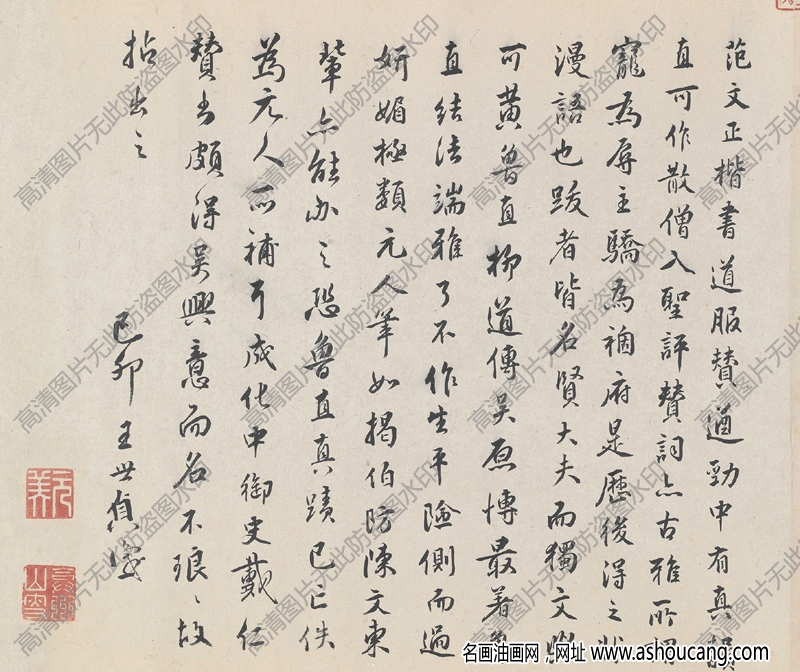 范文正楷書道服贊遒勁中有真韻
直可作散僧入聖評贊詞亦古雅所
寵為辱主驕為禍府是歷後得之
漫語也跋者皆名賢大夫而獨文與
可黃魯直柳道傳吳原博最著
直結法端雅了不作生平險側而過
妍媚極類元人筆如揭伯防陳文東
輩亦能办之恐魯直真蹟已亡佚
為元人所補耳成化中御史戴仁
贊書頗得吳興意而名不琅琅故
拈出之
己卯王世貞識
元美
名画油画网，网址 www.ashoucang.com
高清图片无此防盗图水印